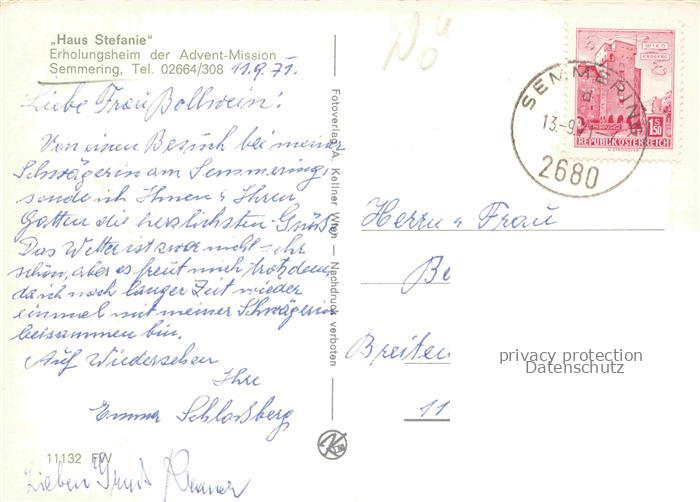 „Haus Stefanie"
Erholungsheim der Advent-Mission
Semmering, Tel. 02664/308 11.9.71.
Liebe Frau Bollwein!
Von einen Besuch bei meiner
Schwägerin am Semmering
sende ich Ihnen u Ihren
Gatten die herzlichsten Grüße
Das Wetter ist zwar nicht sehr
schön, aber es freut mich trotzdem
da ich nach langer Zeit wieder
einmal mit meiner Schwägerin
beisammen bin.
Auf Wiedersehen
Ihre
Emma Schloßberg
11132 FW
Lieben Gruß
Fotoverlag A. Kellner Wien — Nachdruck verboten
K
NÖ
SEMMERING
d
13.-9.71
2680
WIEN
ERDBERG
S 1.50
REPUBLIK ÖSTERREICH
Herrn u Frau
Bo
Breiten
11
privacy protection
Datenschutz